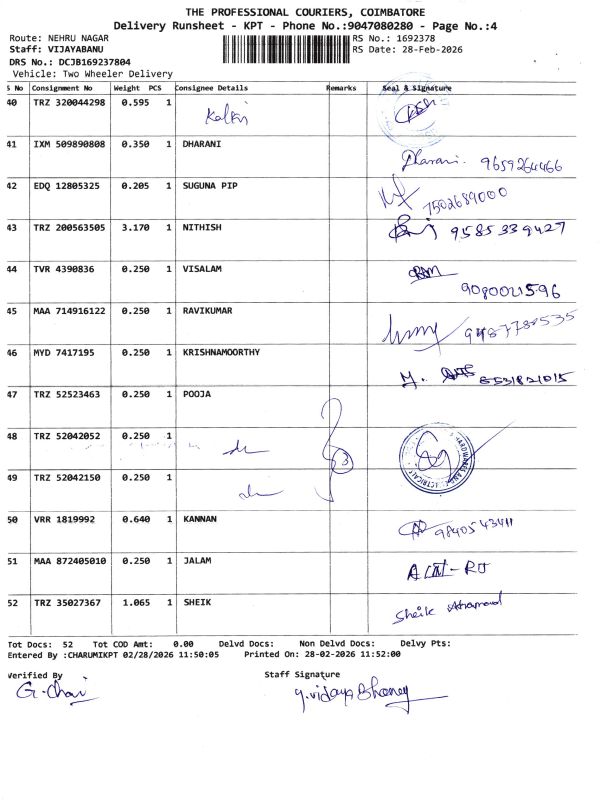 THE PROFESSIONAL COURIERS, COIMBATORE
Delivery Runsheet - KPT - Phone No.:9047080280 - Page No.:4
Route: NEHRU NAGAR RS No.: 1692378
Staff: VIJAYABANU RS Date: 28-Feb-2026
DRS No.: DCJB169237804
Vehicle: Two Wheeler Delivery
S No Consignment No Weight PCS Consignee Details Remarks Seal & Signature
40 TRZ 320044298 0.595 1 Kalki
41 IXM 509890808 0.350 1 DHARANI
Dharani. 9659264466
42 EDQ 12805325 0.205 1 SUGUNA PIP
7502689000
43 TRZ 200563505 3.170 1 NITHISH 9585339427
44 TVR 4390836 0.250 1 VISALAM
9080021596
45 MAA 714916122 0.250 1 RAVIKUMAR
46 MYD 7417195 0.250 1 KRISHNAMOORTHY
47 TRZ 52523463 0.250 1 POOJA
48 TRZ 52042052 0.250 1
3
49 TRZ 52042150 0.250 1
50 VRR 1819992 0.640 1 KANNAN
9840543411
51 MAA 872405010 0.250 1 JALAM
52 TRZ 35027367 1.065 1 SHEIK
Sheik
Tot Docs: 52 Tot COD Amt: 0.00 Delvd Docs: Non Delvd Docs: Delvy Pts:
Entered By :CHARUMIKPT 02/28/2026 11:50:05 Printed On: 28-02-2026 11:52:00
Verified By Staff Signature